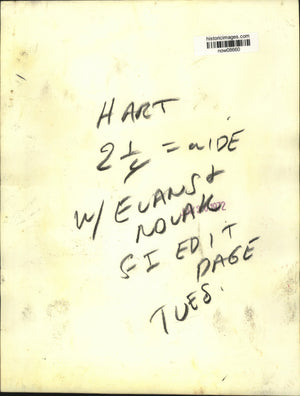 historicimages.com
now08660
HART
2 1/4 = WIDE
W/ EVANS &
NOVAK
EDIT
PAGE
TUES.